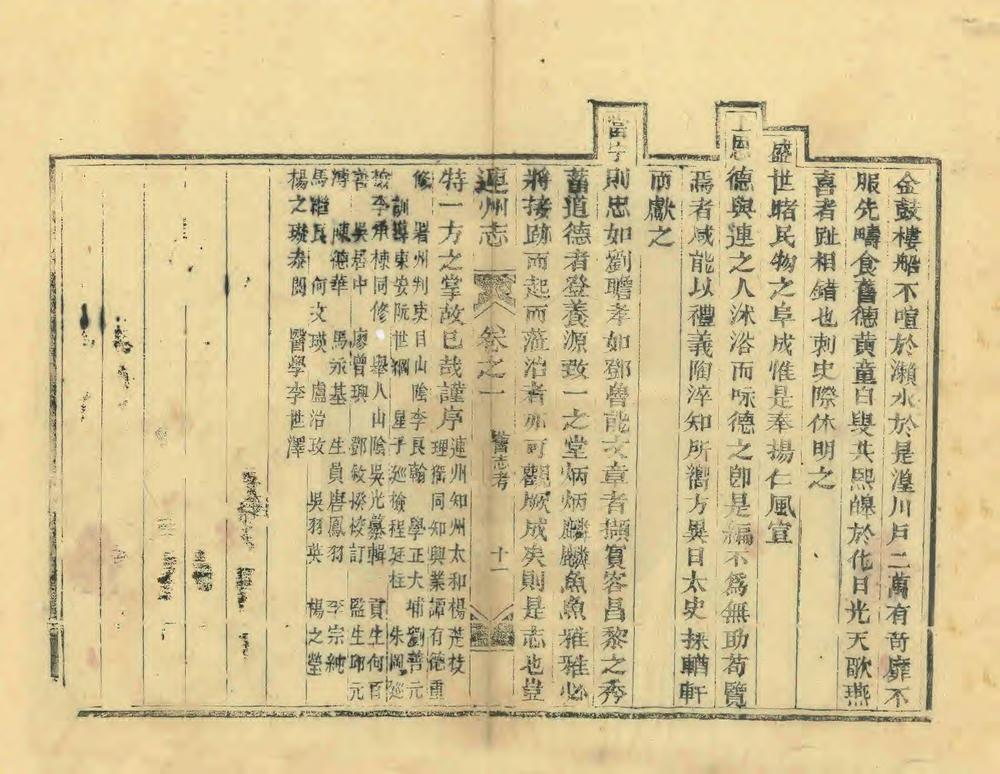 金鼓樓船不喧於瀨水於是湟川戶二萬有奇靡不
服先疇食舊德黃童白叟共熙皥於化日光天歌燕
喜者趾相錯也刺史際休明之
盛世睹民物之阜成惟是奉揚仁風宣
上恩德與連之人沐浴而咏德之卽是編不爲無助苟覽
焉者咸能以禮義陶淬知所嚮方異日太史採輶軒
而獻之
當宁則忠如劉瞻孝如鄧魯能文章者擷賓客昌黎之秀
蓄道德者登養源致一之堂炳炳麟麟魚魚雅雅必
將接跡而起而蒞治者亦可觀厥成矣則是志也豈
連州志 卷之一 舊志考 十一
特一方之掌故已哉謹序
連州知州太和楊楚枝
理猺同知興業譚有德重
修 署州判吏目山陰李良翰 學正大埔劉普元
訓導東安阮世綱 星子巡檢程廷柱 朱岡巡
檢李承棟同修 舉人山陰吳光纂輯 貢生何百
吳居中 廖曾興 鄧敏揆校訂 監生元
陳德華 馬永基 生員唐鳳羽 李宗純
馬 民 何文瑛 盧治玫 吳羽英 楊之瑩
楊之 泰閱 醫學李世澤